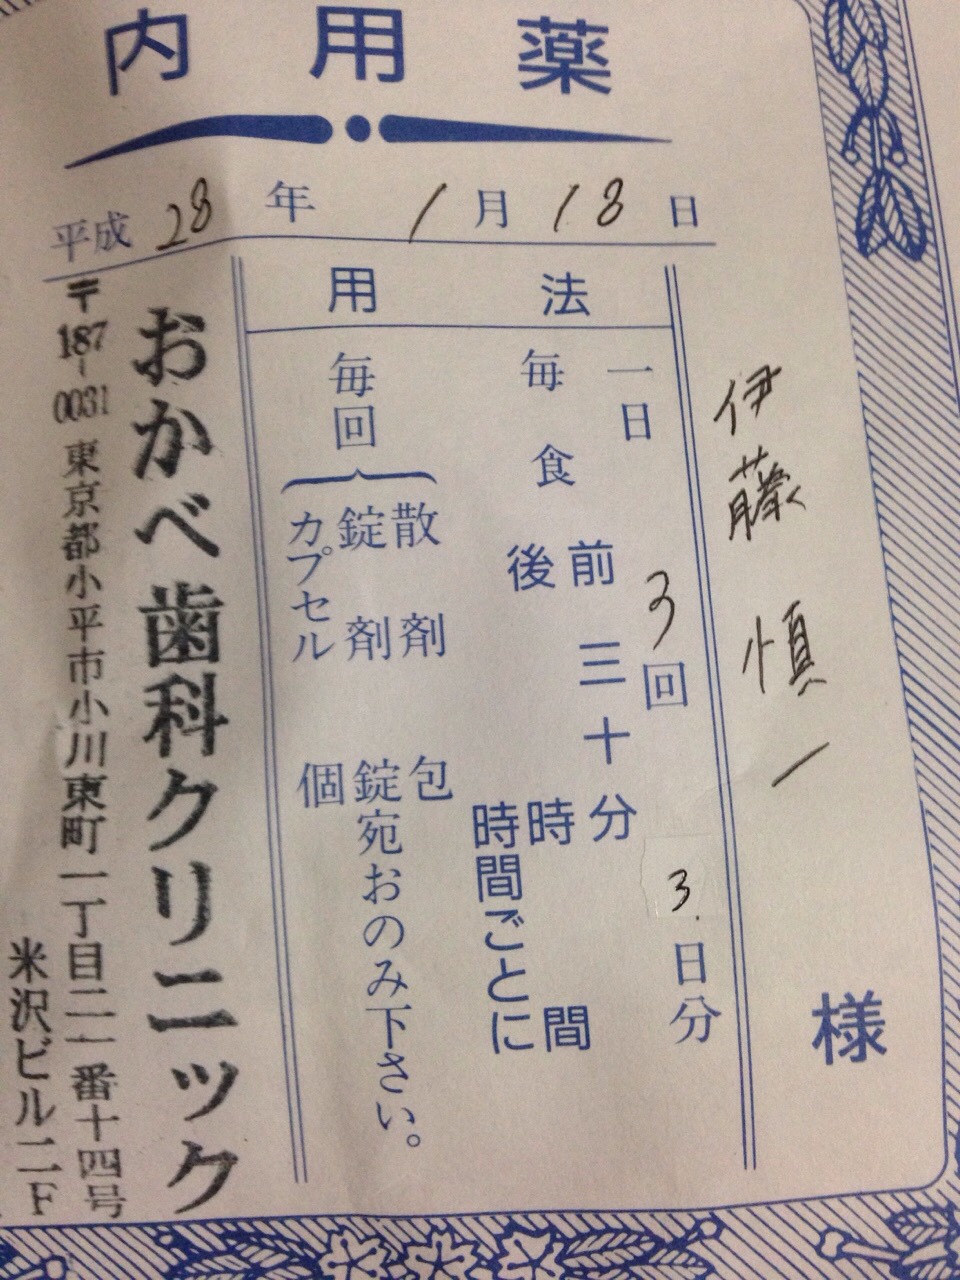 内用薬
平成28年1月18日
伊藤慎一様
用法
一日3回3.日分
毎食前三十分
後時間
時間ごとに
毎回
散剤包
錠剤錠宛おのみ下さい。
カプセル個
おかべ歯科クリニック
〒187-0031東京都小平市小川東町一丁目二一番十四号
米沢ビル二F